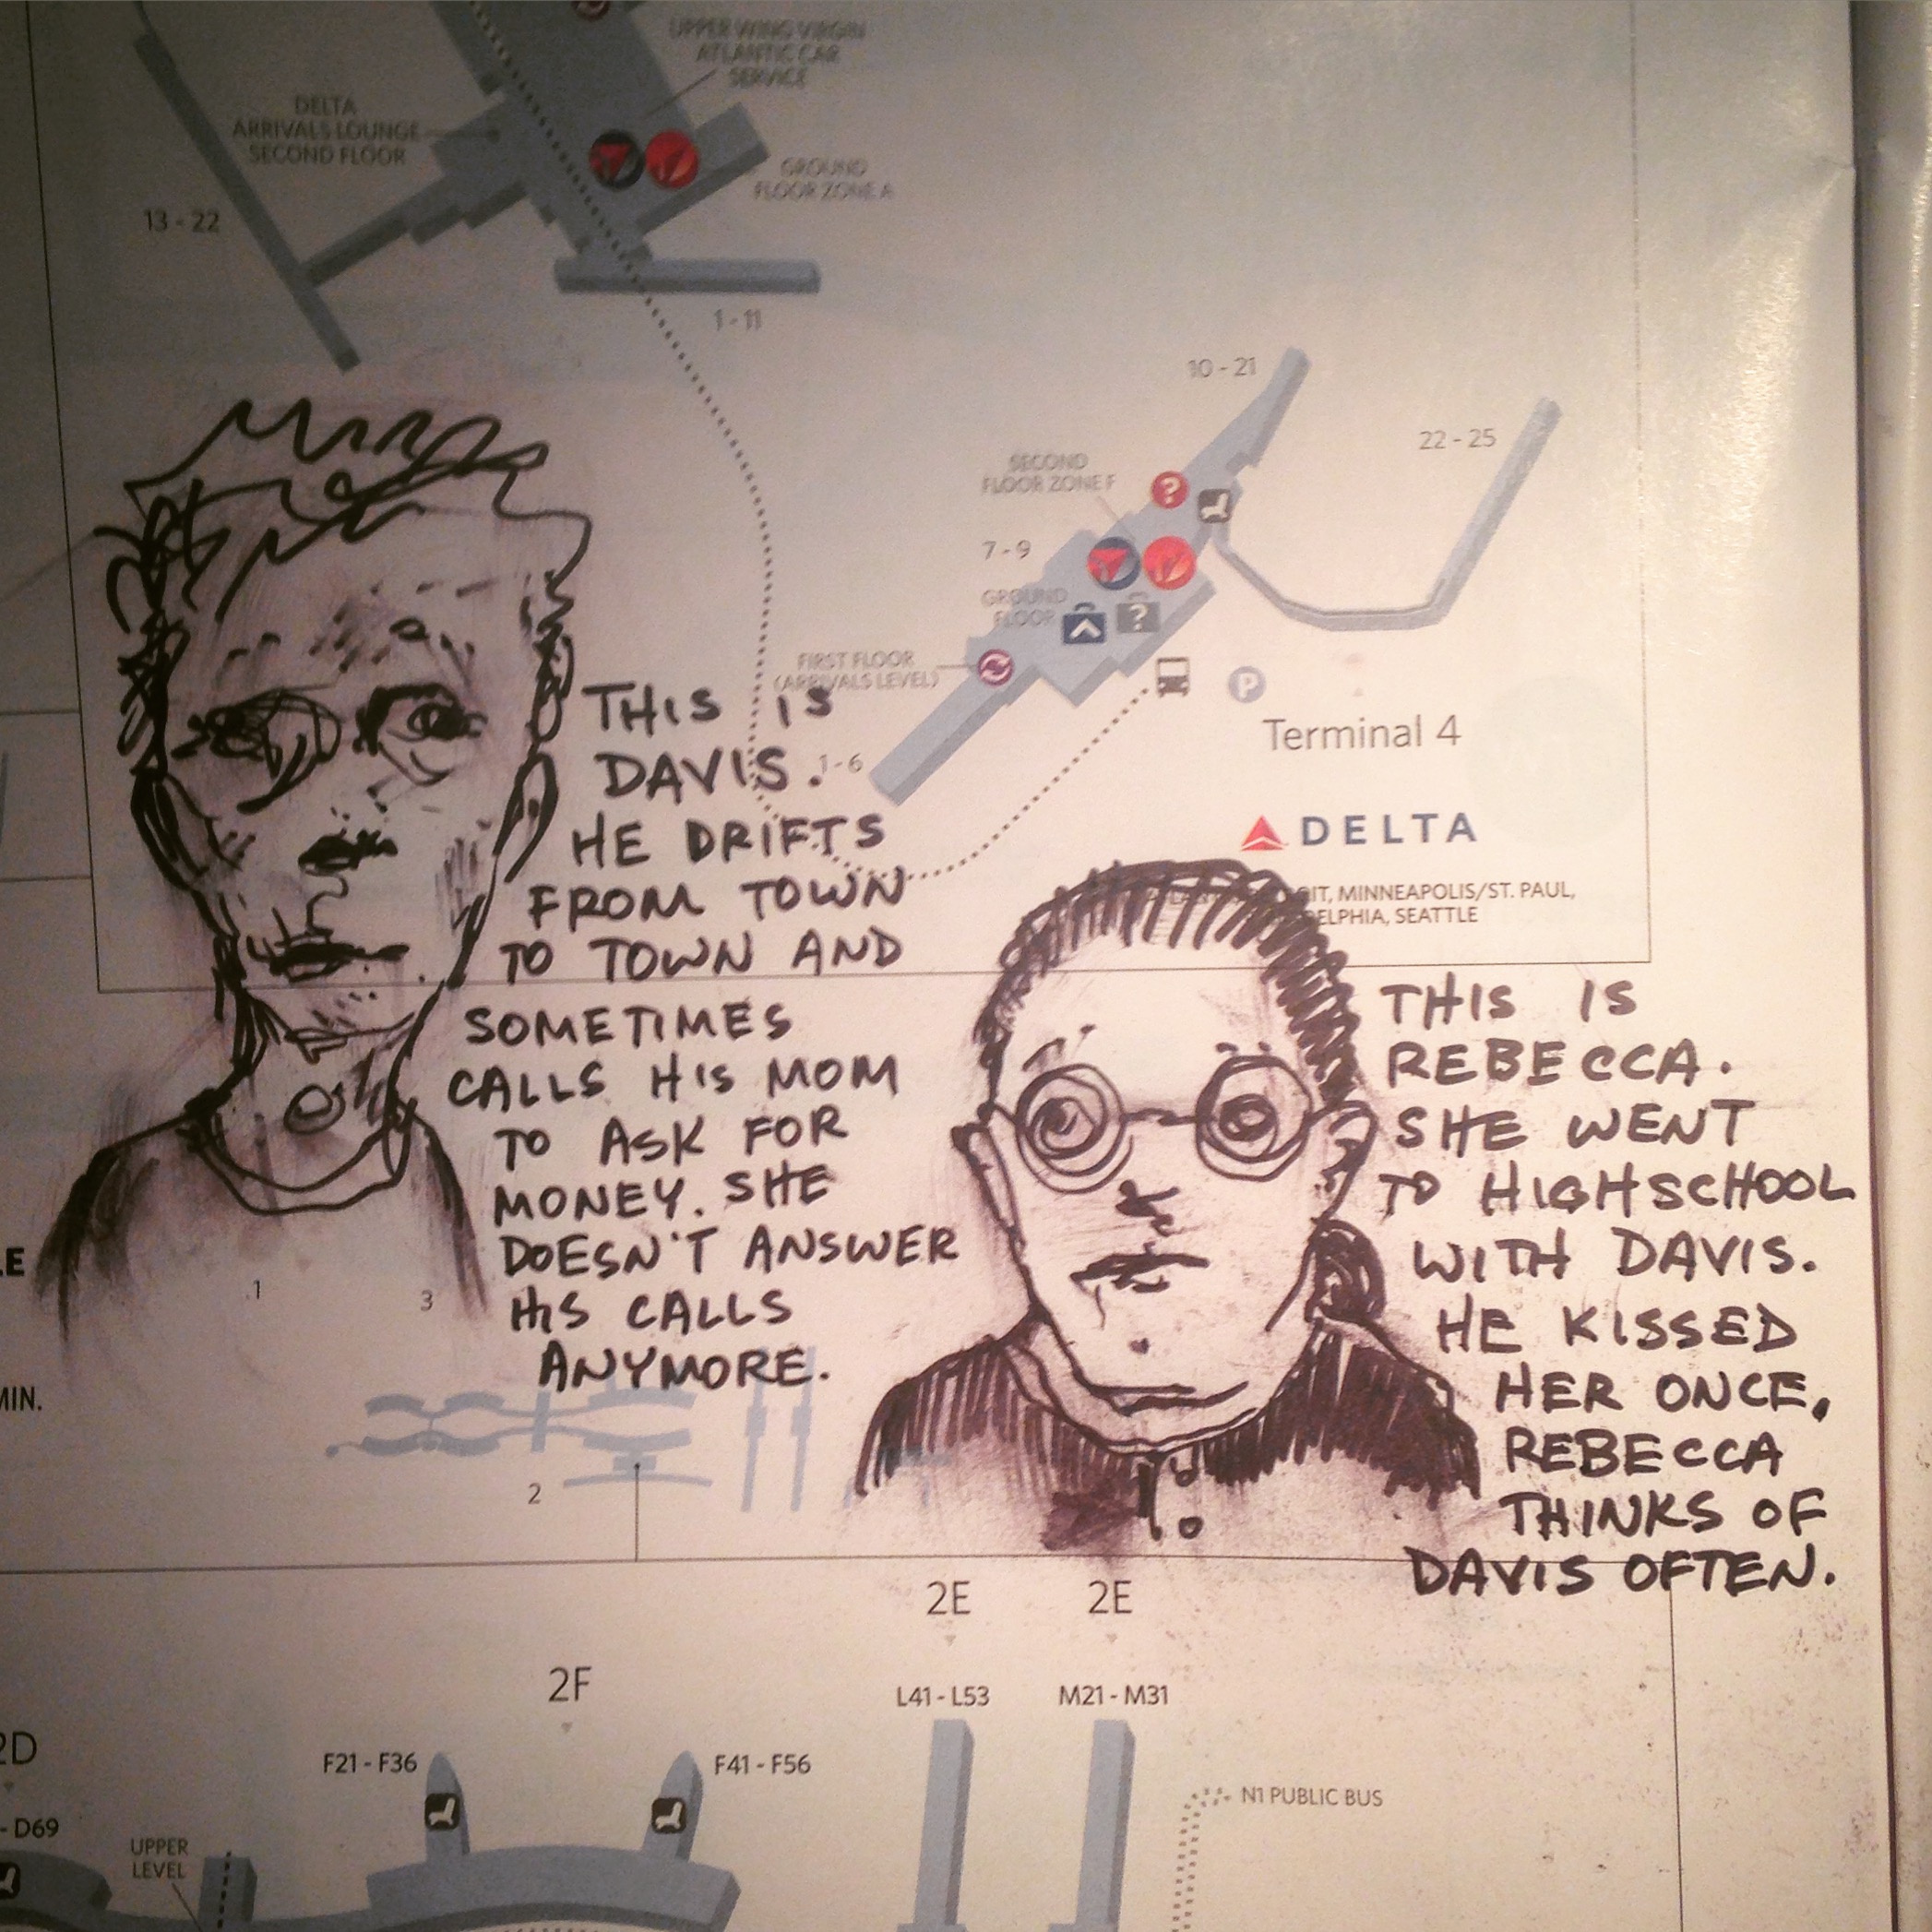 UPPER WING VIRGIN
ATLANTIC CAR
SERVICE
DELTA
ARRIVALS LOUNGE
SECOND FLOOR
GROUND
FLOOR ZONE A
13 - 22
1 - 11
10 - 21
22 - 25
SECOND
FLOOR ZONE F
7 - 9
GROUND
FLOOR
FIRST FLOOR
(ARRIVALS LEVEL)
P
1 - 6
Terminal 4
DELTA
MINNEAPOLIS/ST. PAUL,
SEATTLE
THIS IS
DAVIS.
HE DRIFTS
FROM TOWN
TO TOWN AND
SOMETIMES
CALLS HIS MOM
TO ASK FOR
MONEY. SHE
DOESN'T ANSWER
HIS CALLS
ANYMORE.
THIS IS
REBECCA.
SHE WENT
TO HIGHSCHOOL
WITH DAVIS.
HE KISSED
HER ONCE,
REBECCA
THINKS OF
DAVIS OFTEN.
1
3
2
MIN.
2E 2E
2F
L41 - L53
M21 - M31
2D
F21 - F36
F41 - F56
N1 PUBLIC BUS
- D69
UPPER
LEVEL